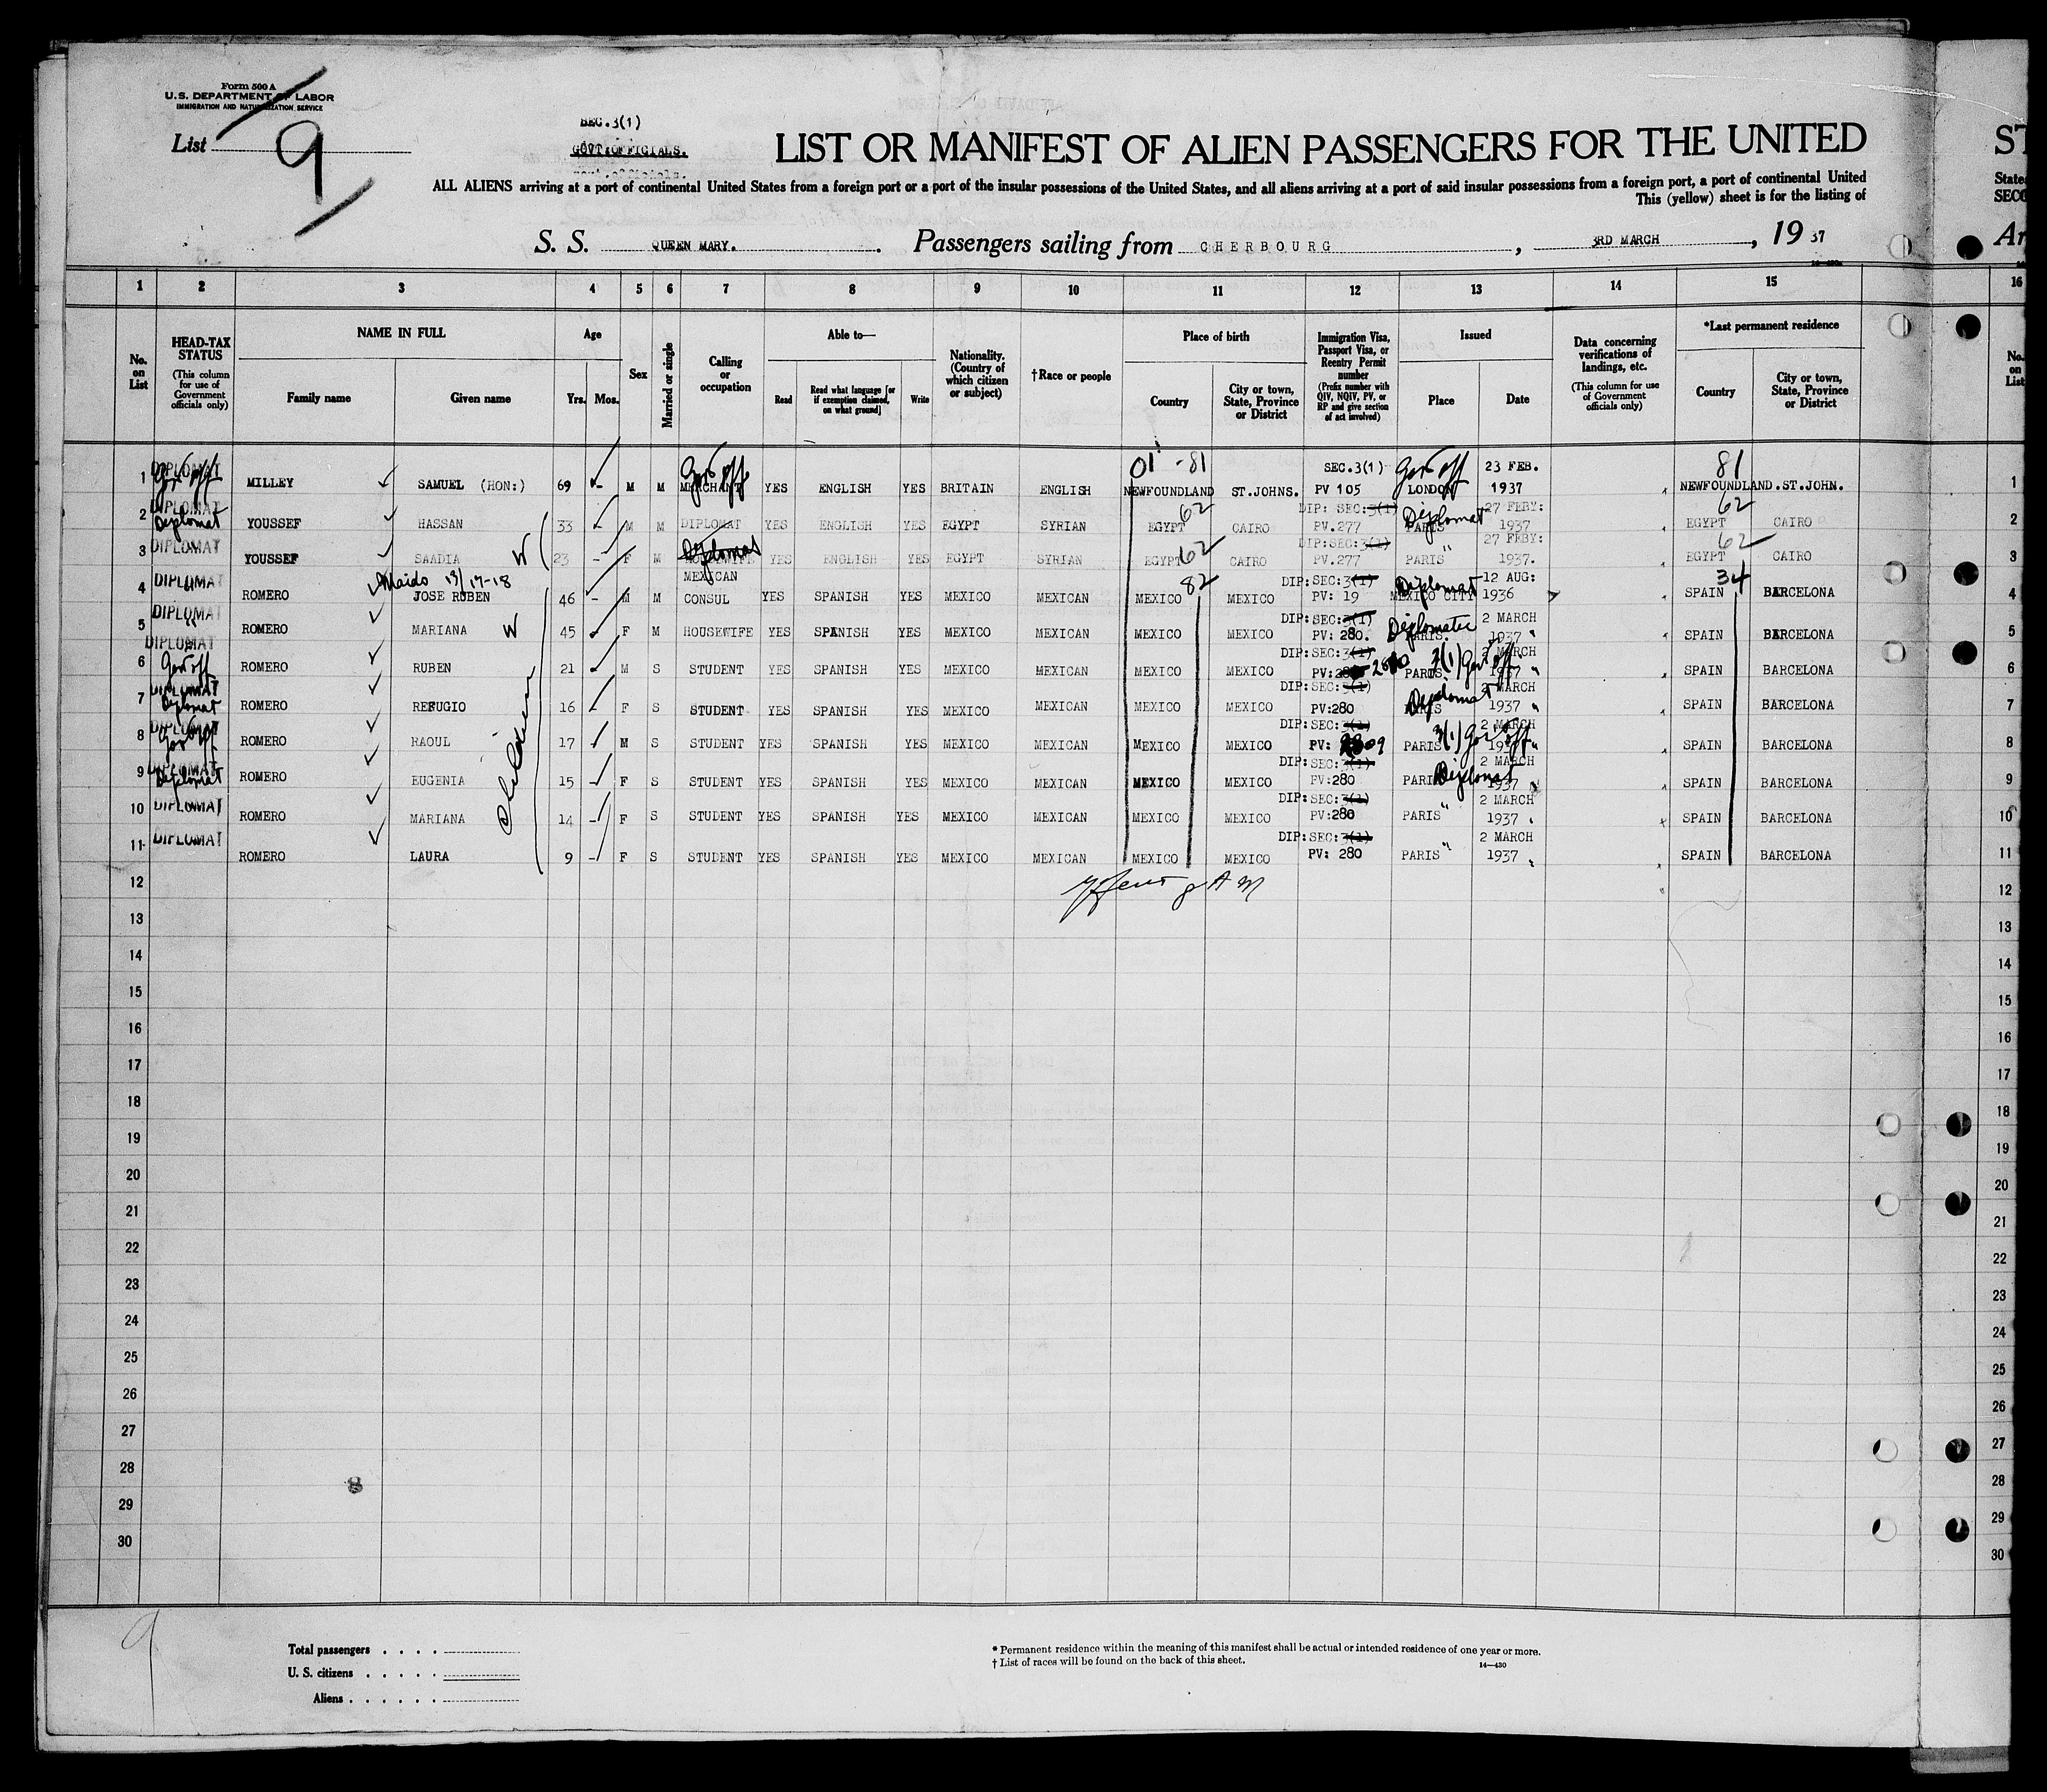 Form 500 A
U.S. DEPARTMENT OF LABOR
IMMIGRATION AND NATURALIZATION SERVICE
List 9
SEC.3(1)
GOVT:OFFICIALS.
LIST OR MANIFEST OF ALIEN PASSENGERS FOR THE UNITED ST
ALL ALIENS arriving at a port of continental United States from a foreign port or a port of the insular possessions of the United States, and all aliens arriving at a port of said insular possessions from a foreign port, a port of continental United State
This (yellow) sheet is for the listing of SECO
S. S. QUEEN MARY. Passengers sailing from CHERBOURG, 3RD MARCH, 19 37 Ar
1 2 3 4 5 6 7 8 9 10 11 12 13 14 15 16
No. on List
HEAD-TAX STATUS (This column for use of Government officials only)
NAME IN FULL
Family name Given name
Age
Yrs. Mos.
Sex
Married or single
Calling or occupation
Able to—
Read Read what language [or if exemption claimed, on what ground] Write
Nationality. (Country of which citizen or subject)
†Race or people
Place of birth
Country City or town, State, Province or District
Immigration Visa, Passport Visa, or Reentry Permit number (Prefix number with QIV, NQIV, PV, or RP and give section of act involved)
Issued
Place Date
Data concerning verifications of landings, etc. (This column for use of Government officials only)
*Last permanent residence
Country City or town, State, Province or District
No. on List
1 DIPLOMAT Gov off MILLEY SAMUEL (HON:) 69 - M M MERCHANT Gov off YES ENGLISH YES BRITAIN ENGLISH 01 -81 NEWFOUNDLAND ST.JOHNS. SEC.3(1) PV 105 Gov off LONDON 23 FEB. 1937 81 NEWFOUNDLAND.ST.JOHN. 1
2 DIPLOMAT Diplomat YOUSSEF HASSAN 33 - M M DIPLOMAT YES ENGLISH YES EGYPT SYRIAN 62 EGYPT CAIRO DIP: SEC:3(1) PV.277 Diplomat PARIS 27 FEBY: 1937 62 EGYPT CAIRO 2
3 DIPLOMAT YOUSSEF SAADIA W 23 - F M HOUSEWIFE Diplomat YES ENGLISH YES EGYPT SYRIAN 62 EGYPT CAIRO DIP:SEC:3(1) PV.277 PARIS " 27 FEBY: 1937. 62 EGYPT CAIRO 3
4 DIPLOMAT ROMERO Maids 19/17-18 JOSE RUBEN 46 - M M MEXICAN CONSUL YES SPANISH YES MEXICO MEXICAN 82 MEXICO MEXICO DIP:SEC:3(1) PV: 19 Diplomat MEXICO CITY 12 AUG: 1936 34 SPAIN BARCELONA 4
5 DIPLOMAT ROMERO MARIANA W 45 F M HOUSEWIFE YES SPANISH YES MEXICO MEXICAN MEXICO MEXICO DIP:SEC:3(1) PV: 280. Diplomatic PARIS. 2 MARCH 1937 " SPAIN BARCELONA 5
6 DIPLOMAT Gov off ROMERO RUBEN 21 M S STUDENT YES SPANISH YES MEXICO MEXICAN MEXICO MEXICO DIP:SEC:3(1) PV: PARIS 3(1) Gov off 2 MARCH 1937 " SPAIN BARCELONA 6
7 DIPLOMAT Diplomat ROMERO REFUGIO 16 F S STUDENT YES SPANISH YES MEXICO MEXICAN MEXICO MEXICO DIP:SEC:3(1) PV:280 Diplomat PARIS 2 MARCH 1937 " SPAIN BARCELONA 7
8 DIPLOMAT Gov off ROMERO RAOUL 17 M S STUDENT YES SPANISH YES MEXICO MEXICAN MEXICO MEXICO DIP:SEC:3(1) PV: PARIS 3(1) Gov off 2 MARCH 1937 " SPAIN BARCELONA 8
9 DIPLOMAT Diplomat ROMERO EUGENIA Children 15 F S STUDENT YES SPANISH YES MEXICO MEXICAN MEXICO MEXICO DIP:SEC:3(1) PV:280 PARIS Diplomat 2 MARCH 1937 SPAIN BARCELONA 9
10 DIPLOMAT ROMERO MARIANA 14 - F S STUDENT YES SPANISH YES MEXICO MEXICAN MEXICO MEXICO DIP:SEC:3(1) PV:280 PARIS " 2 MARCH 1937 SPAIN BARCELONA 10
11 DIPLOMAT ROMERO LAURA 9 - F S STUDENT YES SPANISH YES MEXICO MEXICAN MEXICO MEXICO DIP:SEC:3(1) PV: 280 PARIS " 2 MARCH 1937 SPAIN BARCELONA 11
12 12
13 13
14 14
15 15
16 16
17 17
18 18
19 19
20 20
21 21
22 22
23 23
24 24
25 25
26 26
27 27
28 28
29 29
30 30
8
9
Total passengers . . . .
U. S. citizens . . . . .
Aliens . . . . . .
* Permanent residence within the meaning of this manifest shall be actual or intended residence of one year or more.
† List of races will be found on the back of this sheet.
14—430